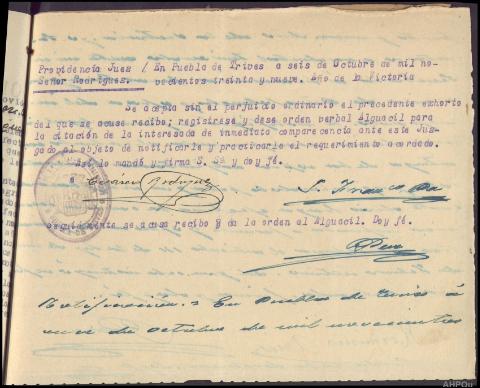 Providencia Juez / En Puebla de Trives a seis de Octubre de mil no-
Señor Rodríguez. vecientos treinta y nueve. Año de la Victoria
Se acepta sin el perjuicio ordinario el precedente exhorto
del que se acuse recibo, registrese y dese orden verbal Alguacil para
la citación de la interesada de inmediata comparecencia ante este Juz-
gado al objeto de notificarle y practicarle el requerimiento acordado.
Así lo mandó y firma S. Sª y doy fé.
Rodríguez
Seguidamente se acusa recibo y da la orden el Alguacil. Doy fé.
Notificación.= En Puebla de Trives á
once de octubre de mil novecientos
AHPOu